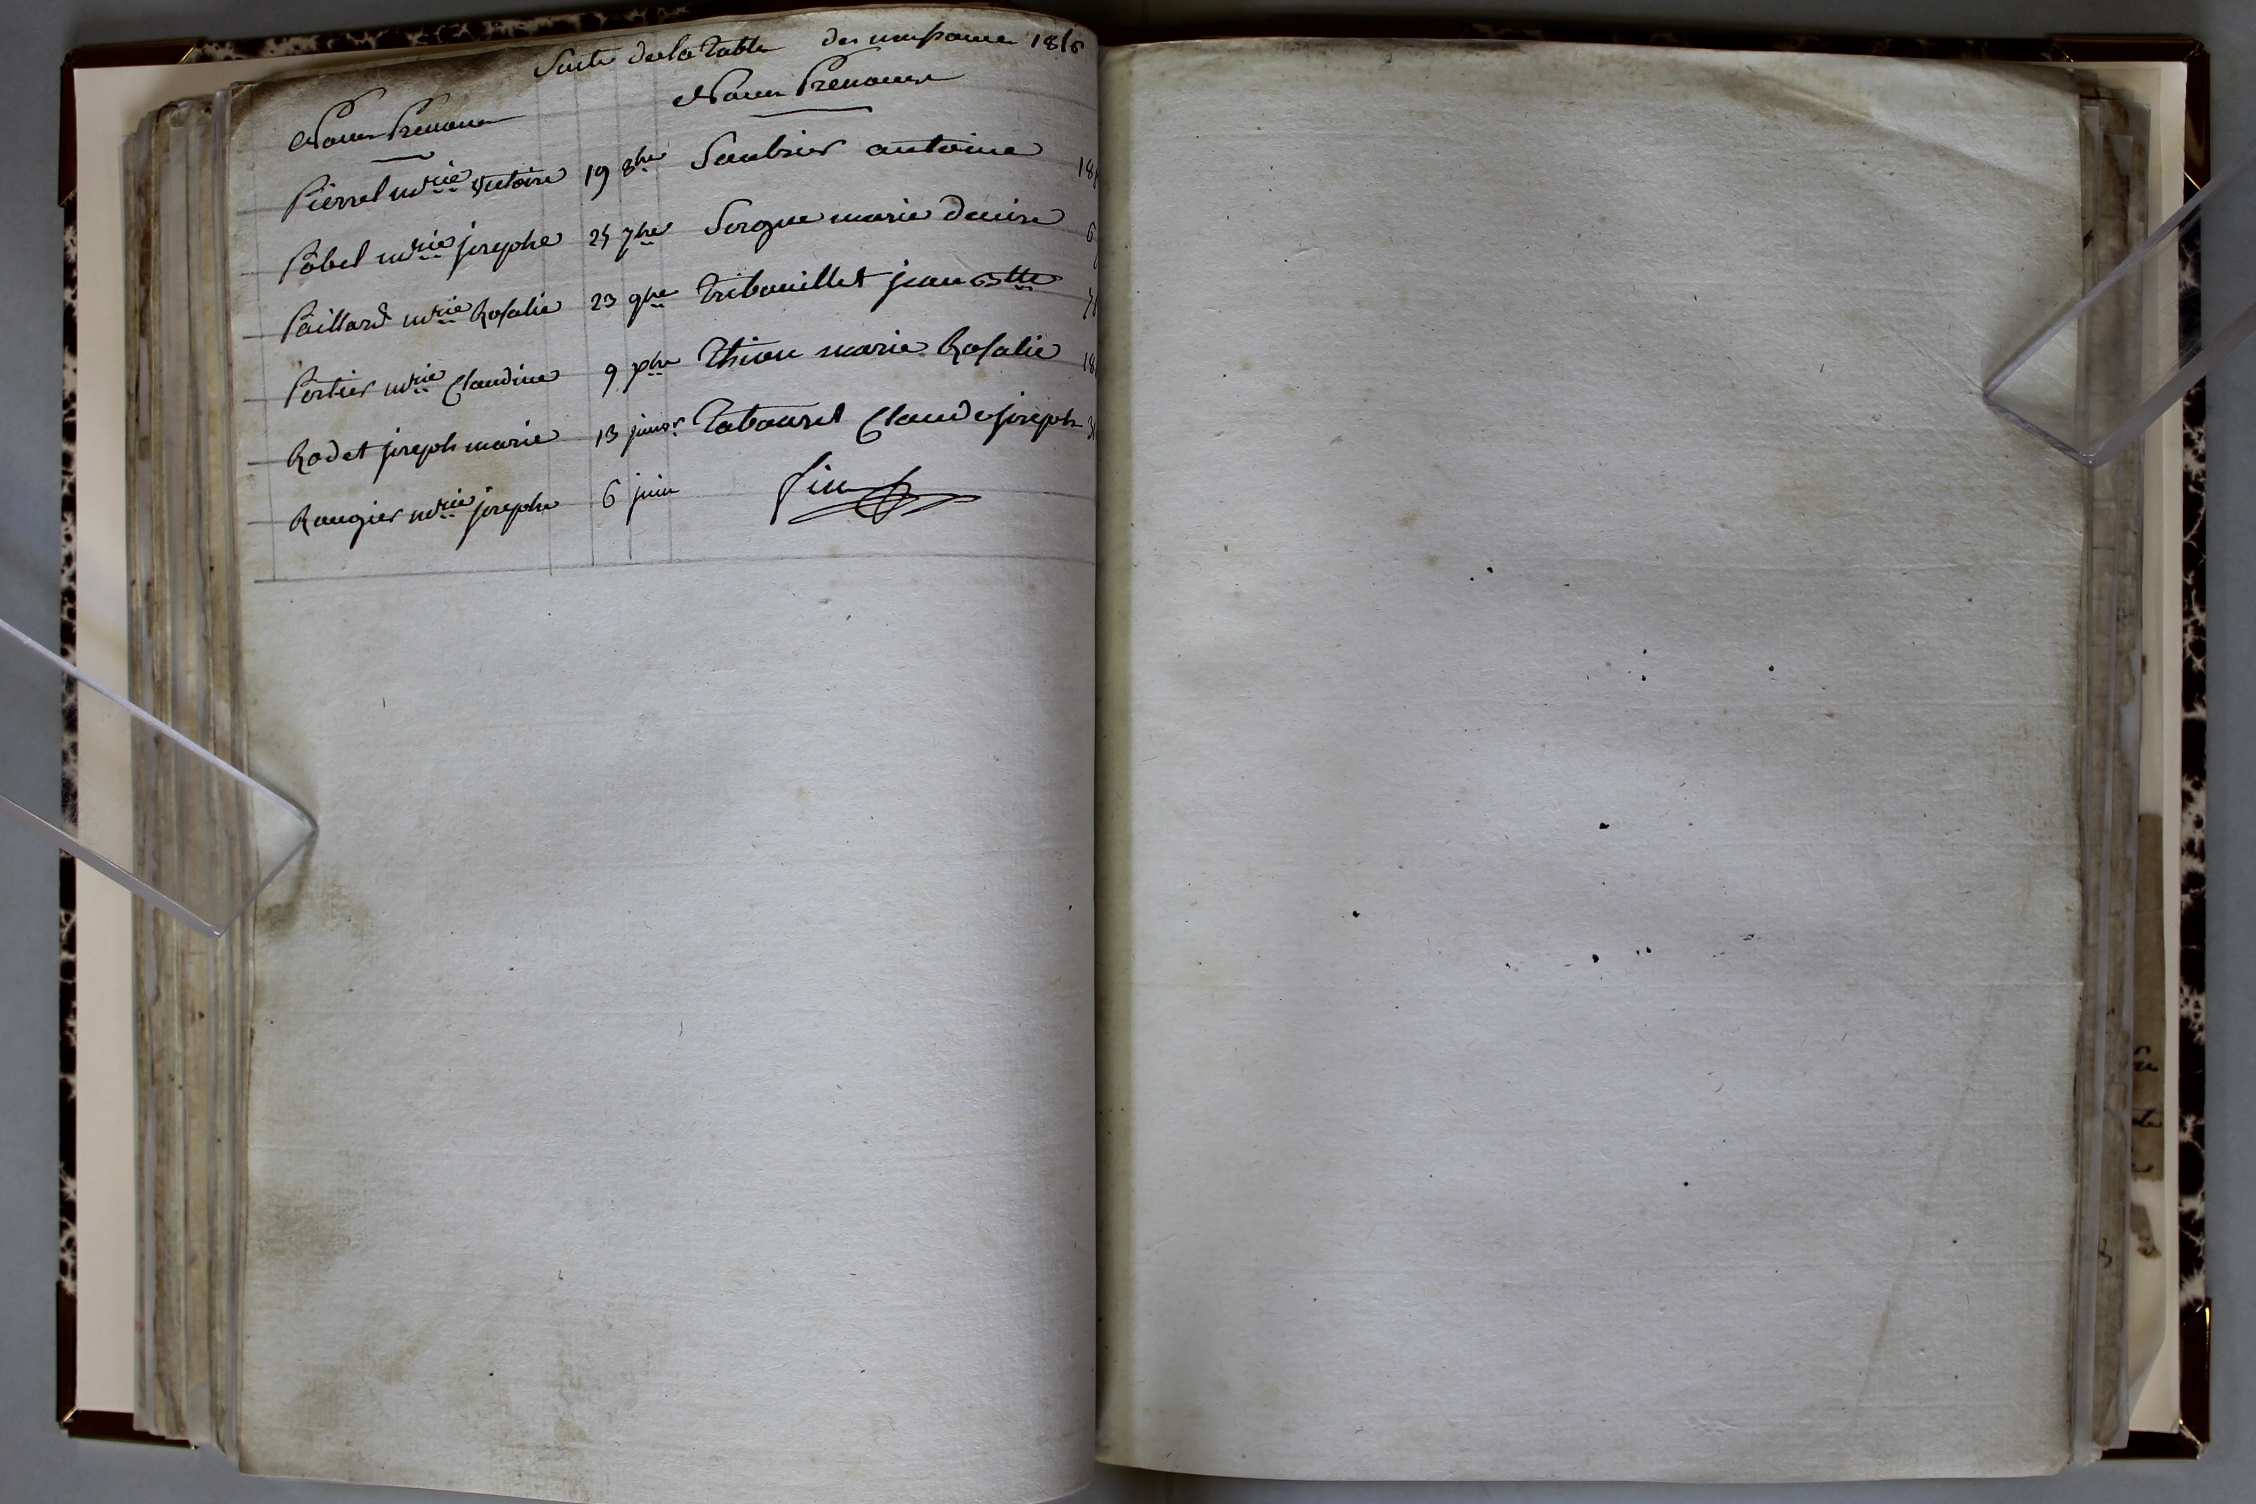 Suite de la Table des naissance 181
Noms Prenoms
Noms Prenoms
Pierrel mrie victoire 19 8bre Saubrier antoine 18
Pobel mrie josephe 25 7bre Sorgue marie denise 6
Paillard mrie Rosalie 23 9bre Tribouillet jean Btte
Portier mrie Claudine 9 xbre Thiou marie Rosalie 18
Rodet joseph marie 13 janvr Tabouret Claude joseph
Rougier mrie josephe 6 juin fin